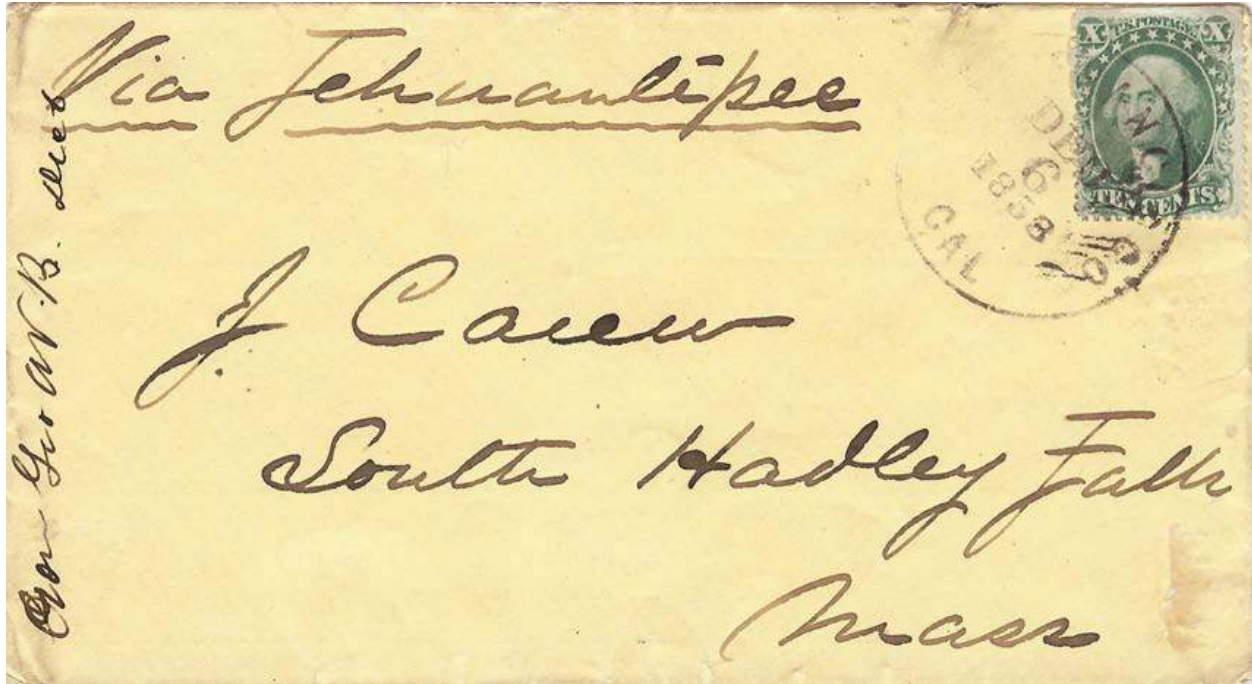 Via Tehuantepec
X U.S. POSTAGE X
TEN CENTS.
DEC
6
1858
CAL
J Carew
South Hadley Falls
Mass